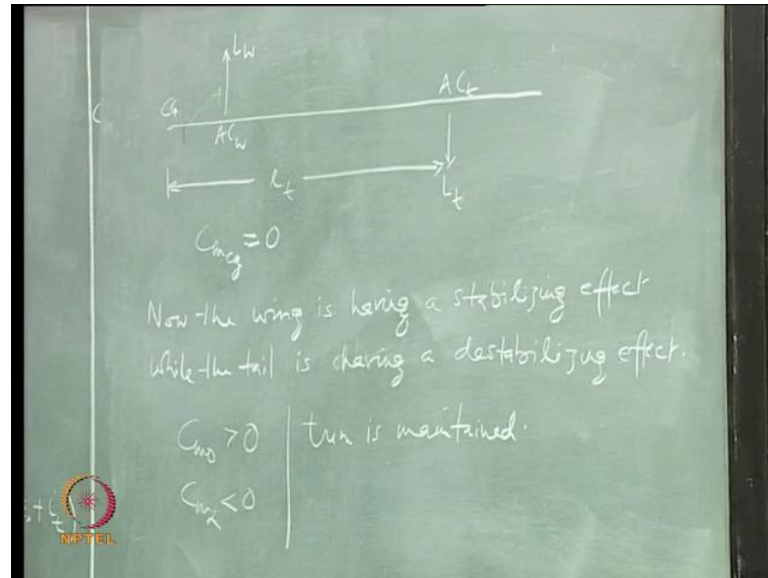 L_W
CG
AC_W
AC_t
l_t
L_t
C_mcg = 0
Now the wing is having a stabilizing effect
while the tail is having a destabilizing effect.
C_m0 > 0 | trim is maintained.
C_mα < 0
NPTEL